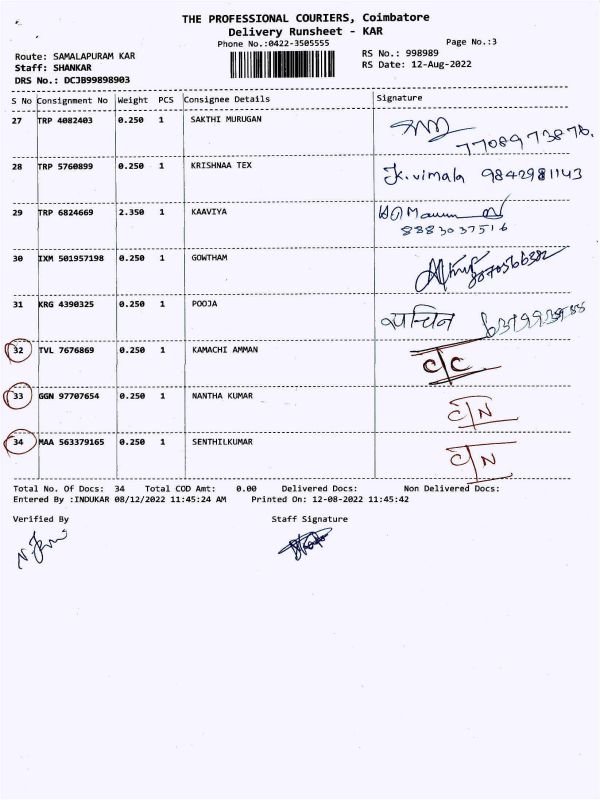 THE PROFESSIONAL COURIERS, Coimbatore
Delivery Runsheet - KAR
Phone No.:0422-3505555
Page No.:3
Route: SAMALAPURAM KAR
RS No.: 998989
Staff: SHANKAR
RS Date: 12-Aug-2022
DRS No.: DCJB99898903
S No Consignment No Weight PCS Consignee Details Signature
27 TRP 4082403 0.250 1 SAKTHI MURUGAN
7708973876.
28 TRP 5760899 0.250 1 KRISHNAA TEX K.vimala 9842981143
29 TRP 6824669 2.350 1 KAAVIYA
8883037516
30 IXM 501957198 0.250 1 GOWTHAM
31 KRG 4390325 0.250 1 POOJA
32 TVL 7676869 0.250 1 KAMACHI AMMAN C/C
33 GGN 97707654 0.250 1 NANTHA KUMAR
34 MAA 563379165 0.250 1 SENTHILKUMAR
Total No. Of Docs: 34 Total COD Amt: 0.00 Delivered Docs: Non Delivered Docs:
Entered By :INDUKAR 08/12/2022 11:45:24 AM Printed On: 12-08-2022 11:45:42
Verified By Staff Signature